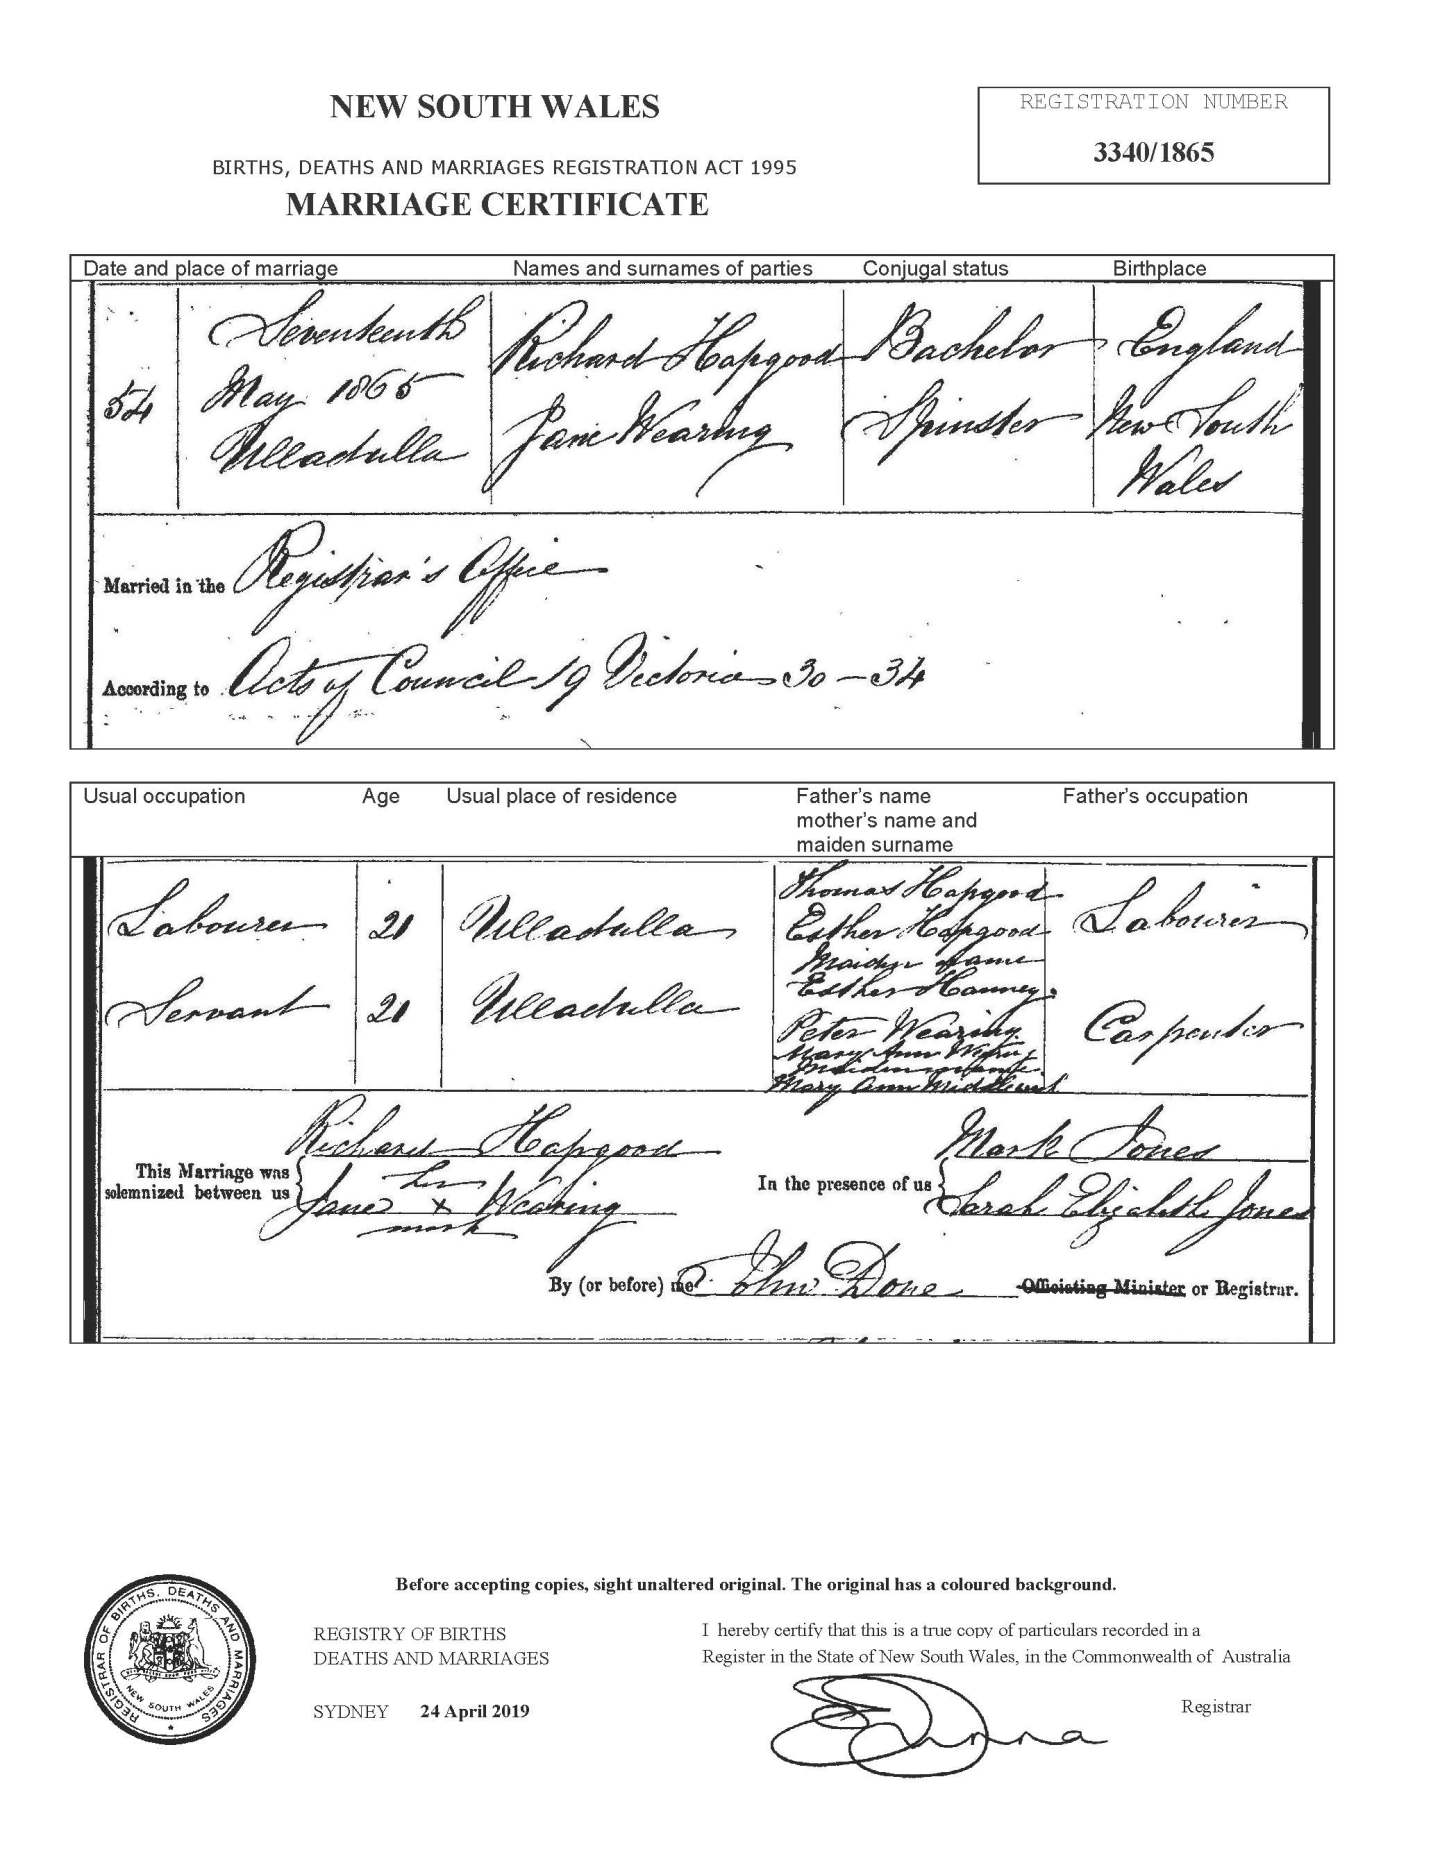 NEW SOUTH WALES
REGISTRATION NUMBER
3340/1865
BIRTHS, DEATHS AND MARRIAGES REGISTRATION ACT 1995
MARRIAGE CERTIFICATE
Date and place of marriage Names and surnames of parties Conjugal status Birthplace
54 Seventeenth Richard Hapgood Bachelor England
May 1865 Jane Wearing Spinster New South
Ulladulla Wales
Married in the Registrar's Office
According to Acts of Council 19 Victoria 30 – 34
Usual occupation Age Usual place of residence Father's name Father's occupation
mother's name and
maiden surname
Labourer 21 Ulladulla Thomas Hapgood Labourer
Esther Hapgood
Maiden Name
Esther Hanney
Servant 21 Ulladulla Peter Wearing Carpenter
Mary Ann
Maiden name
Mary Ann
Richard Hapgood Mark Jones
This Marriage was solemnized between us In the presence of us
Jane her x mark Wearing Sarah Elizabeth Jones
By (or before) me John Done Officiating Minister or Registrar.
REGISTRAR OF BIRTHS, DEATHS AND MARRIAGES
NEW SOUTH WALES
Before accepting copies, sight unaltered original. The original has a coloured background.
REGISTRY OF BIRTHS
DEATHS AND MARRIAGES
SYDNEY 24 April 2019
I hereby certify that this is a true copy of particulars recorded in a
Register in the State of New South Wales, in the Commonwealth of Australia
Registrar